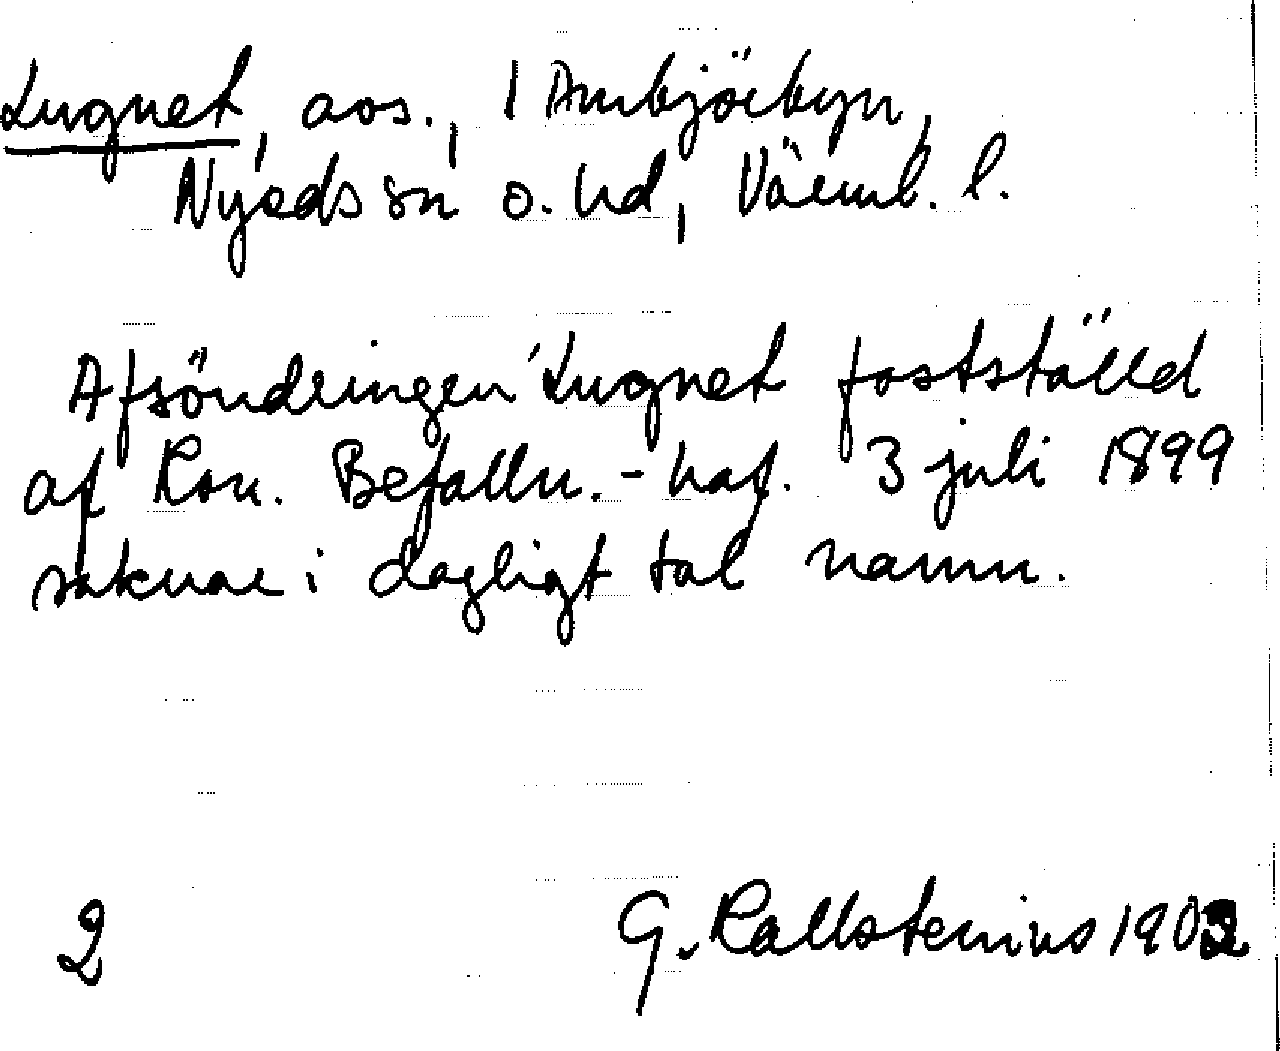 Lugnet, avs., i Ambjörbyn,
Nyeds sn o. hd, Värml. l.
Afsöndringen 'Lugnet fastställd
af Kon. Befalln.-haf. 3 juli 1899
saknar i dagligt tal namn.
2 G. Kallstenius 1902